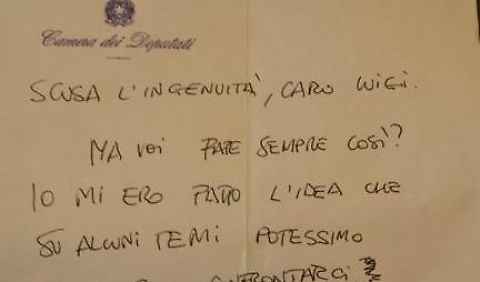 Camera dei Deputati
SCUSA L'INGENUITÀ, CARO LUIGI.
MA VOI FATE SEMPRE COSÌ?
IO MI ERO FATTO L'IDEA CHE
SU ALCUNI TEMI POTESSIMO
CONFRONTARCI